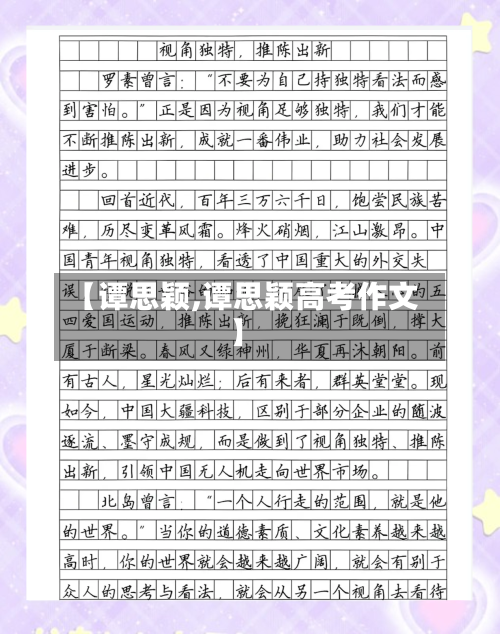 视角独特，推陈出新
罗素曾言：“不要为自己持独特看法而感
到害怕。”正是因为视角足够独特，我们才能
不断推陈出新，成就一番伟业，助力社会发展
进步。
回首近代，百年三万六千日，饱尝民族苦
难，历尽变革风霜。烽火硝烟，江山激昂。中
国青年视角独特，看透了中国重大的外交失
误
【谭思颖,谭思颖高考作文
】
五
四爱国运动，推陈出新，挽狂澜于既倒，撑大
厦于断梁。春风又绿神州，华夏再沐朝阳。前
有古人，星光灿烂；后有来者，群英堂堂。现
如今，中国大疆科技，区别于部分企业的随波
逐流、墨守成规，而是做到了视角独特、推陈
出新，引领中国无人机走向世界市场。
北岛曾言：“一个人行走的范围，就是他
的世界。”当你的道德素质、文化素养越来越
高时，你的世界就会越来越广阔，就会有别于
众人的思考与看法，就会从另一个视角去看待